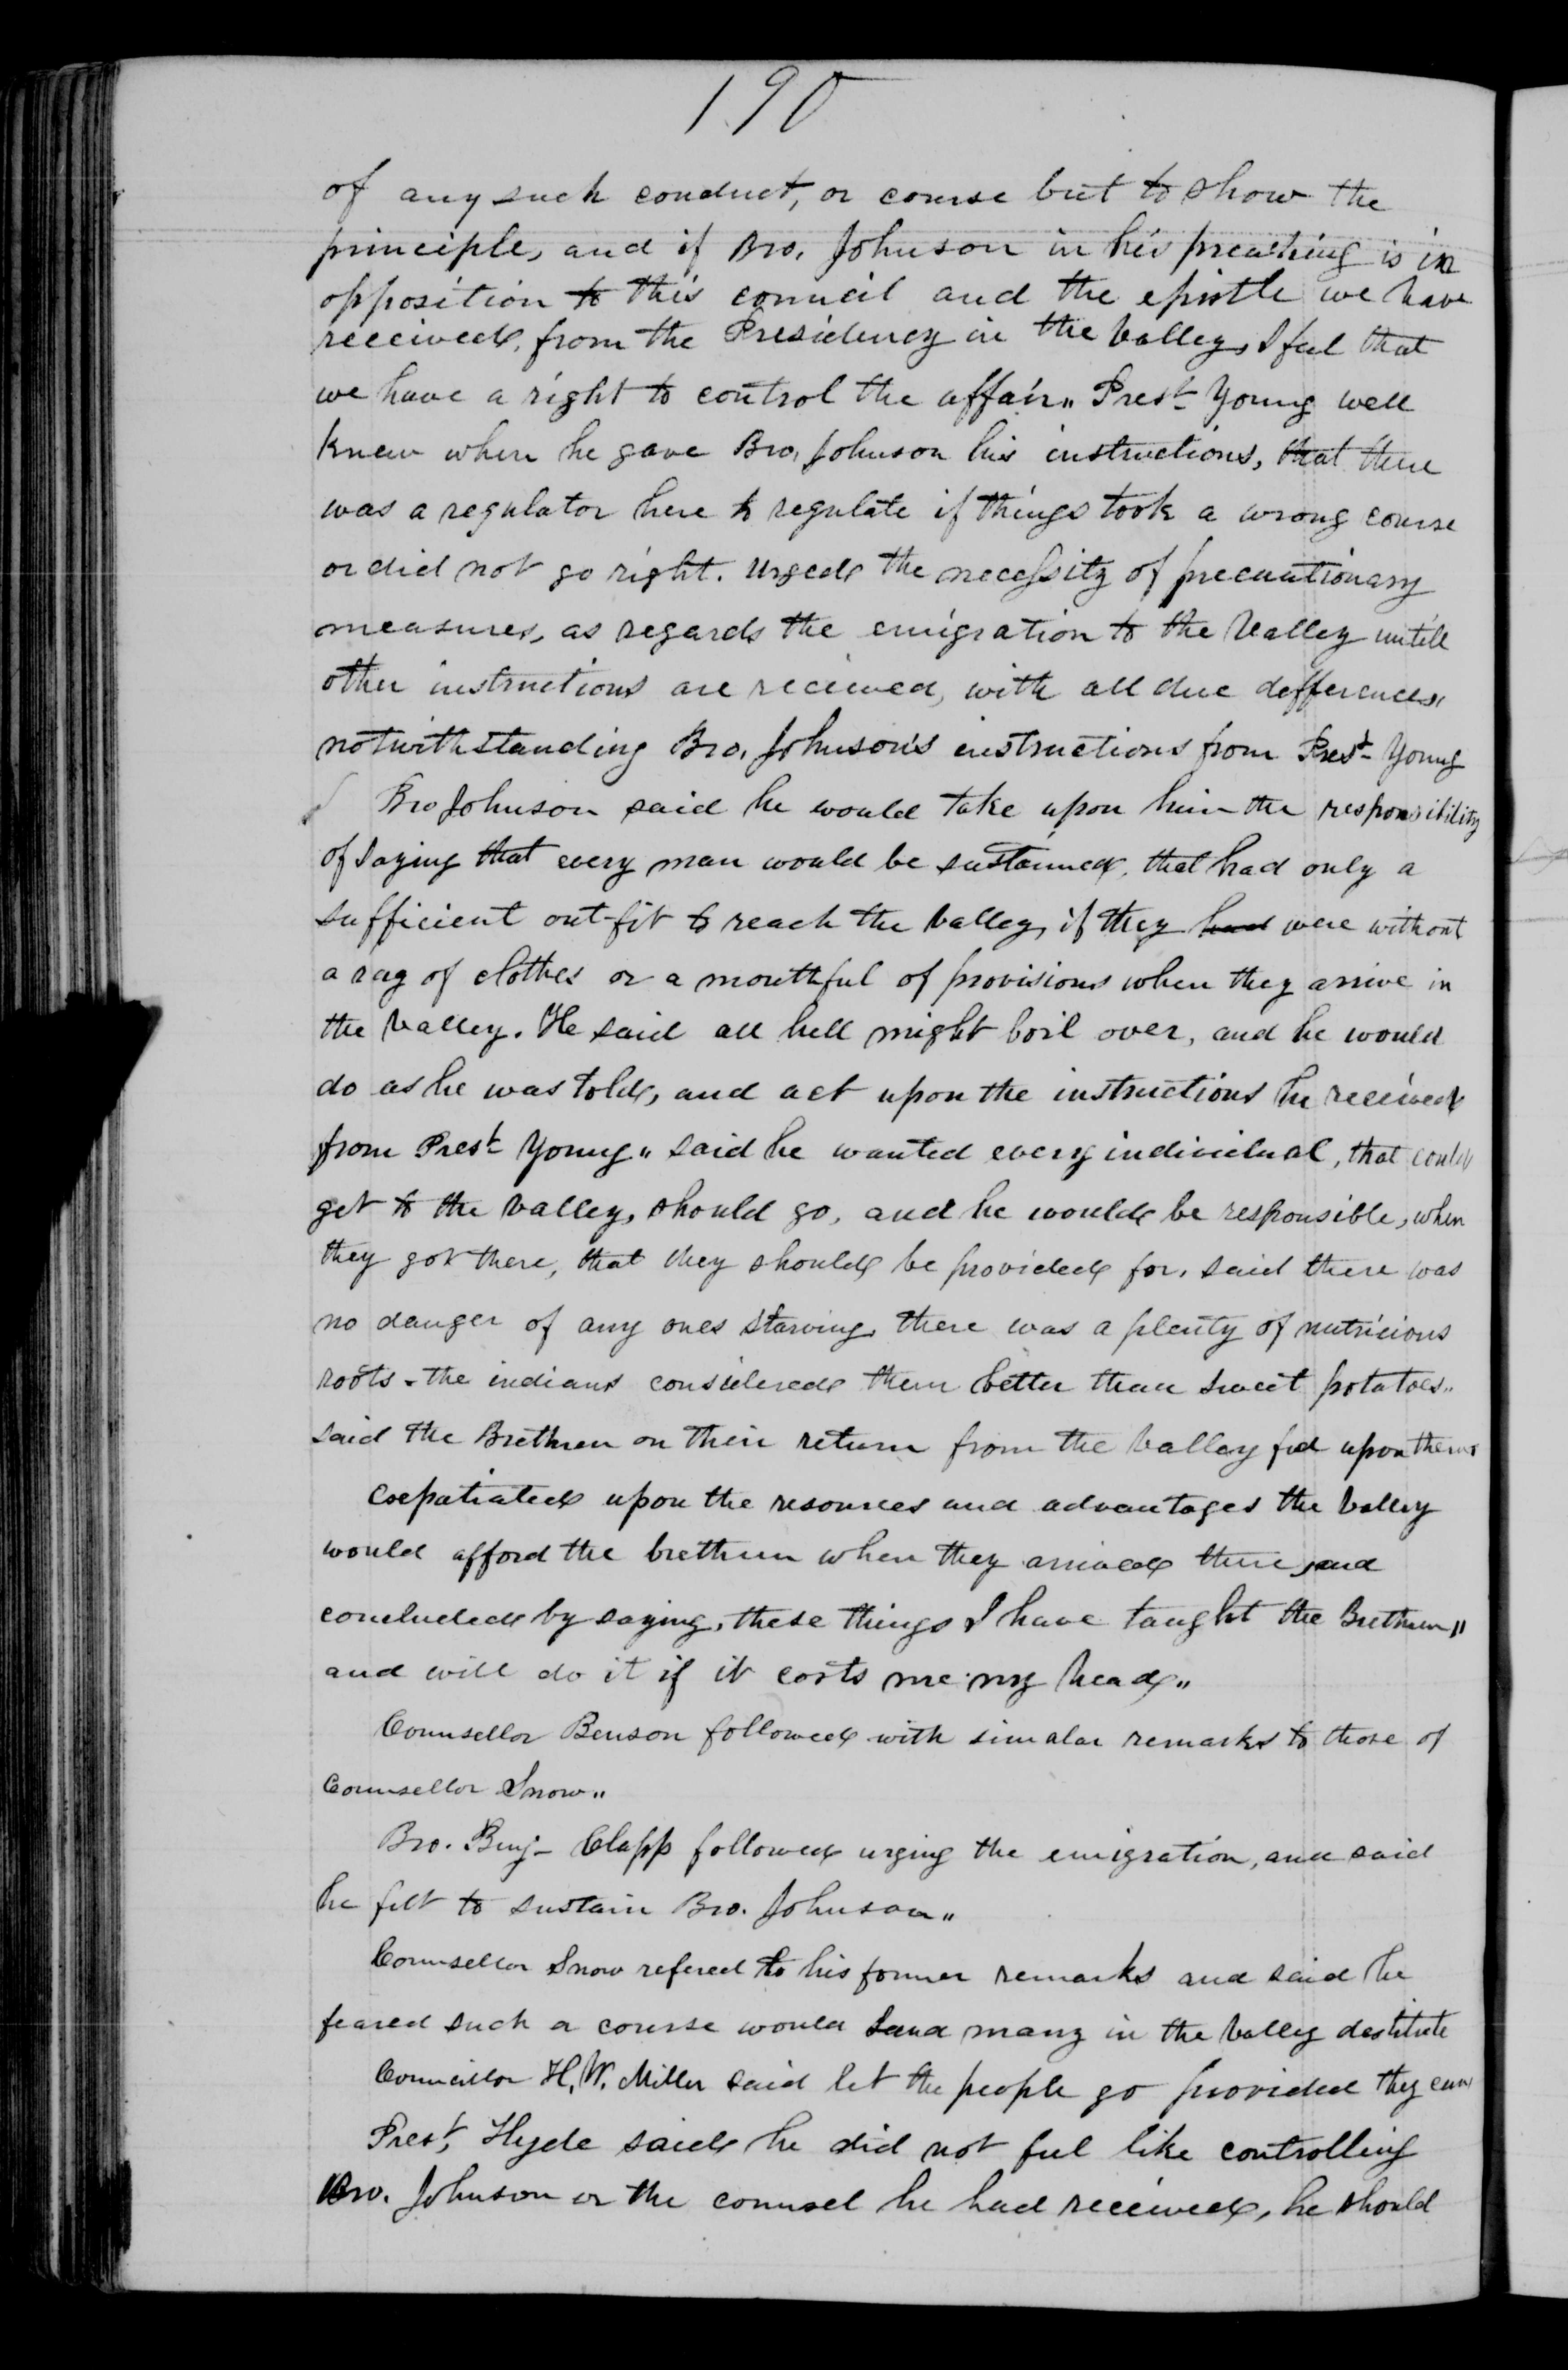 190
of any such conduct, or course but to show the
principle, and if Bro. Johnson in his preaching is in
opposition to this council and the epistle we have
received, from the Presidency in the Valley, I feel that
we have a right to control the affair" Prest Young well
knew when he gave Bro. Johnson his instructions, that there
was a regulator here to regulate if things took a wrong course
or did not go right. Urged the necessity of precautionary
measures, as regards the emigration to the Valley untill
other instructions are received, with all due defference"
notwithstanding Bro. Johnson's instructions from Prest Young
Bro Johnson said he would take upon him the responsibility
of saying that every man would be sustained, that had only a
sufficient out-fit to reach the Valley, if they had were without
a rag of clothes or a mouthful of provisions when they arrive in
the Valley. He said all hell might boil over, and he would
do as he was told, and act upon the instructions he received
from Prest Young" said he wanted every individual, that could
get to the Valley, should go, and he would be responsible, when
they got there, that they should be provided for, said there was
no danger of any ones starving, there was a plenty of nutricious
roots - the indians considered them better than sweet potatoes"
said the Brethren on their return from the Valley fed upon them
Expatiated upon the resources and advantages the Valley
would afford the brethren when they arrived there, and
concluded by saying, these things I have taught the Brethren"
and will do it if it costs me my head"
Counsellor Benson followed with simalar remarks to those of
Counsellor Snow"
Bro. Benj- Clapp followed urging the emigration, and said
he felt to sustain Bro. Johnson"
Counsellor Snow refered to his former remarks and said he
feared such a course would land many in the Valley destitute
Councillor H. W. Miller said let the people go provided they can
Prest, Hyde said he did not feel like controlling
Bro. Johnson or the counsel he had received, he should